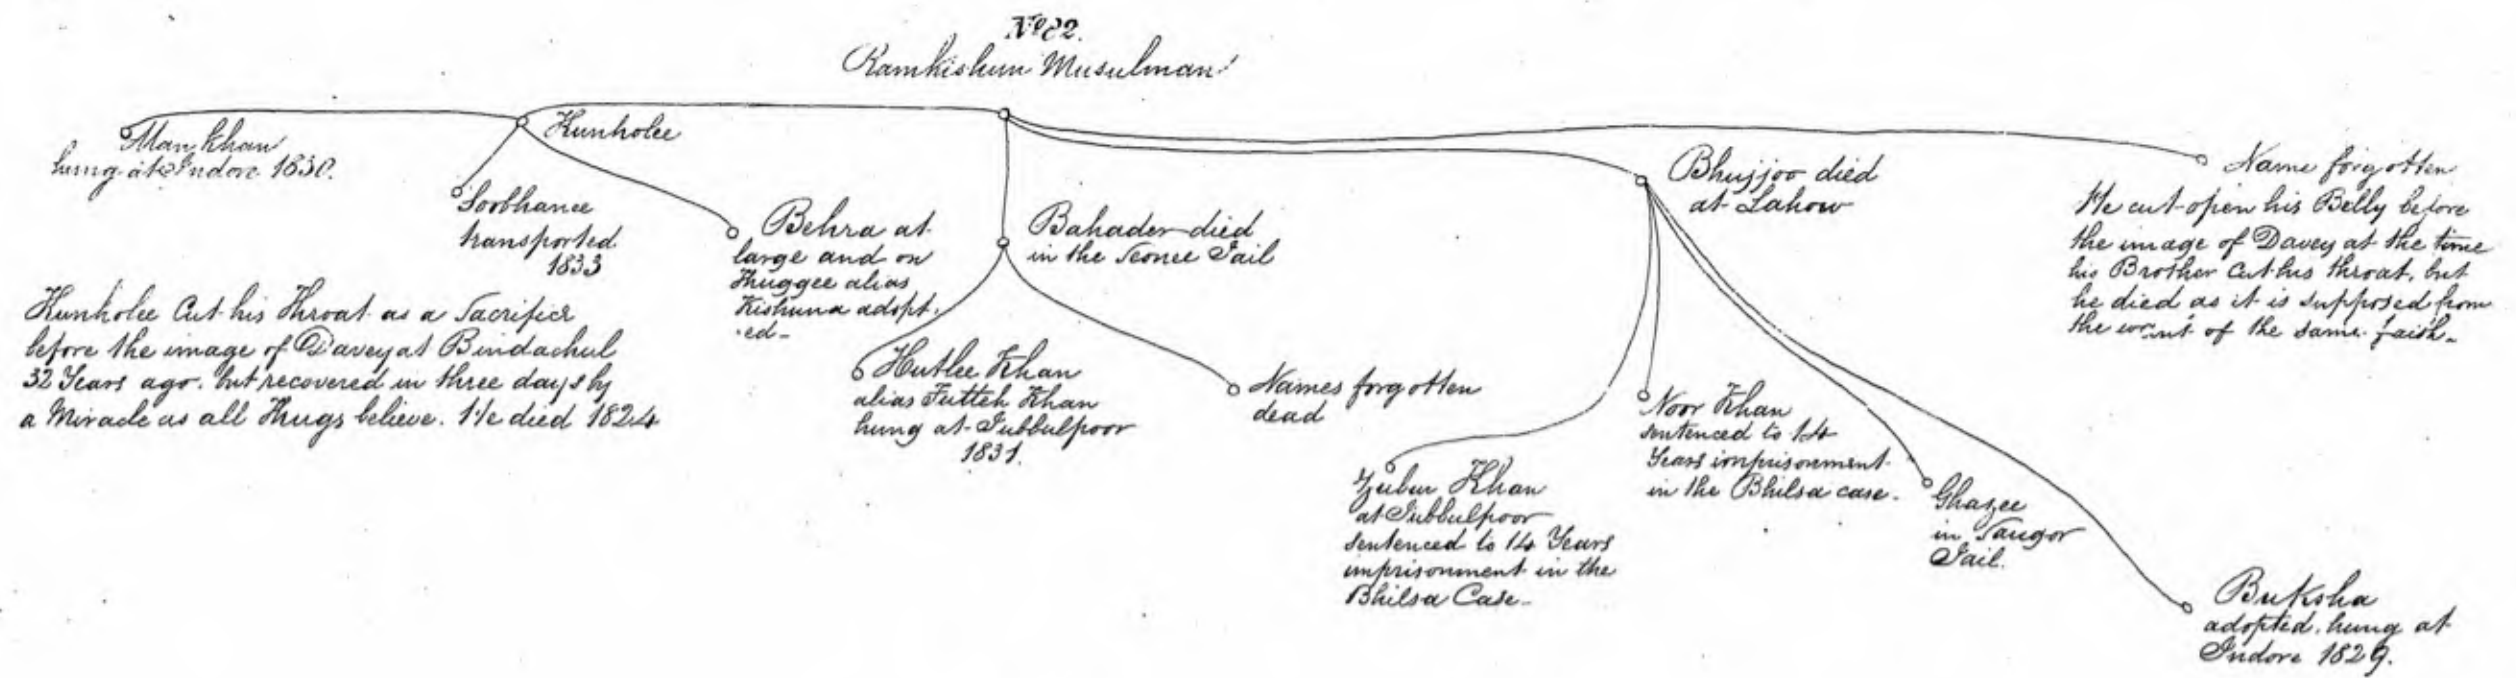 No 82.
Ramkishun Musulman
Man Khan
hung at Indore 1830.
Kunholee
Soobhanee
transported
1833
Behra at
large and on
Thuggee alias
Kishuna adopt.
ed-
Kunholee Cut his Throat as a Sacrifice
before the image of Davey at Bindachul
32 Years ago. but recovered in three days by
a Miracle as all Thugs believe. He died 1824
Bahader died
in the Seonee Jail
Hutlee Khan
alias Futteh Khan
hung at Jubbulpoor
1831.
Names forgotten
dead
Bhujjoo died
at Lahow
Zubur Khan
at Jubbulpoor
sentenced to 14 Years
imprisonment in the
Bhilsa Case-
Noor Khan
sentenced to 14
Years imprisonment
in the Bhilsa case.
Ghazee
in Saugor
Jail.
Buksha
adopted. hung at
Indore 1829.
Name forgotten
He cut open his Belly before
the image of Davey at the time
his Brother Cut his throat, but
he died as it is supposed from
the want of the same faith.